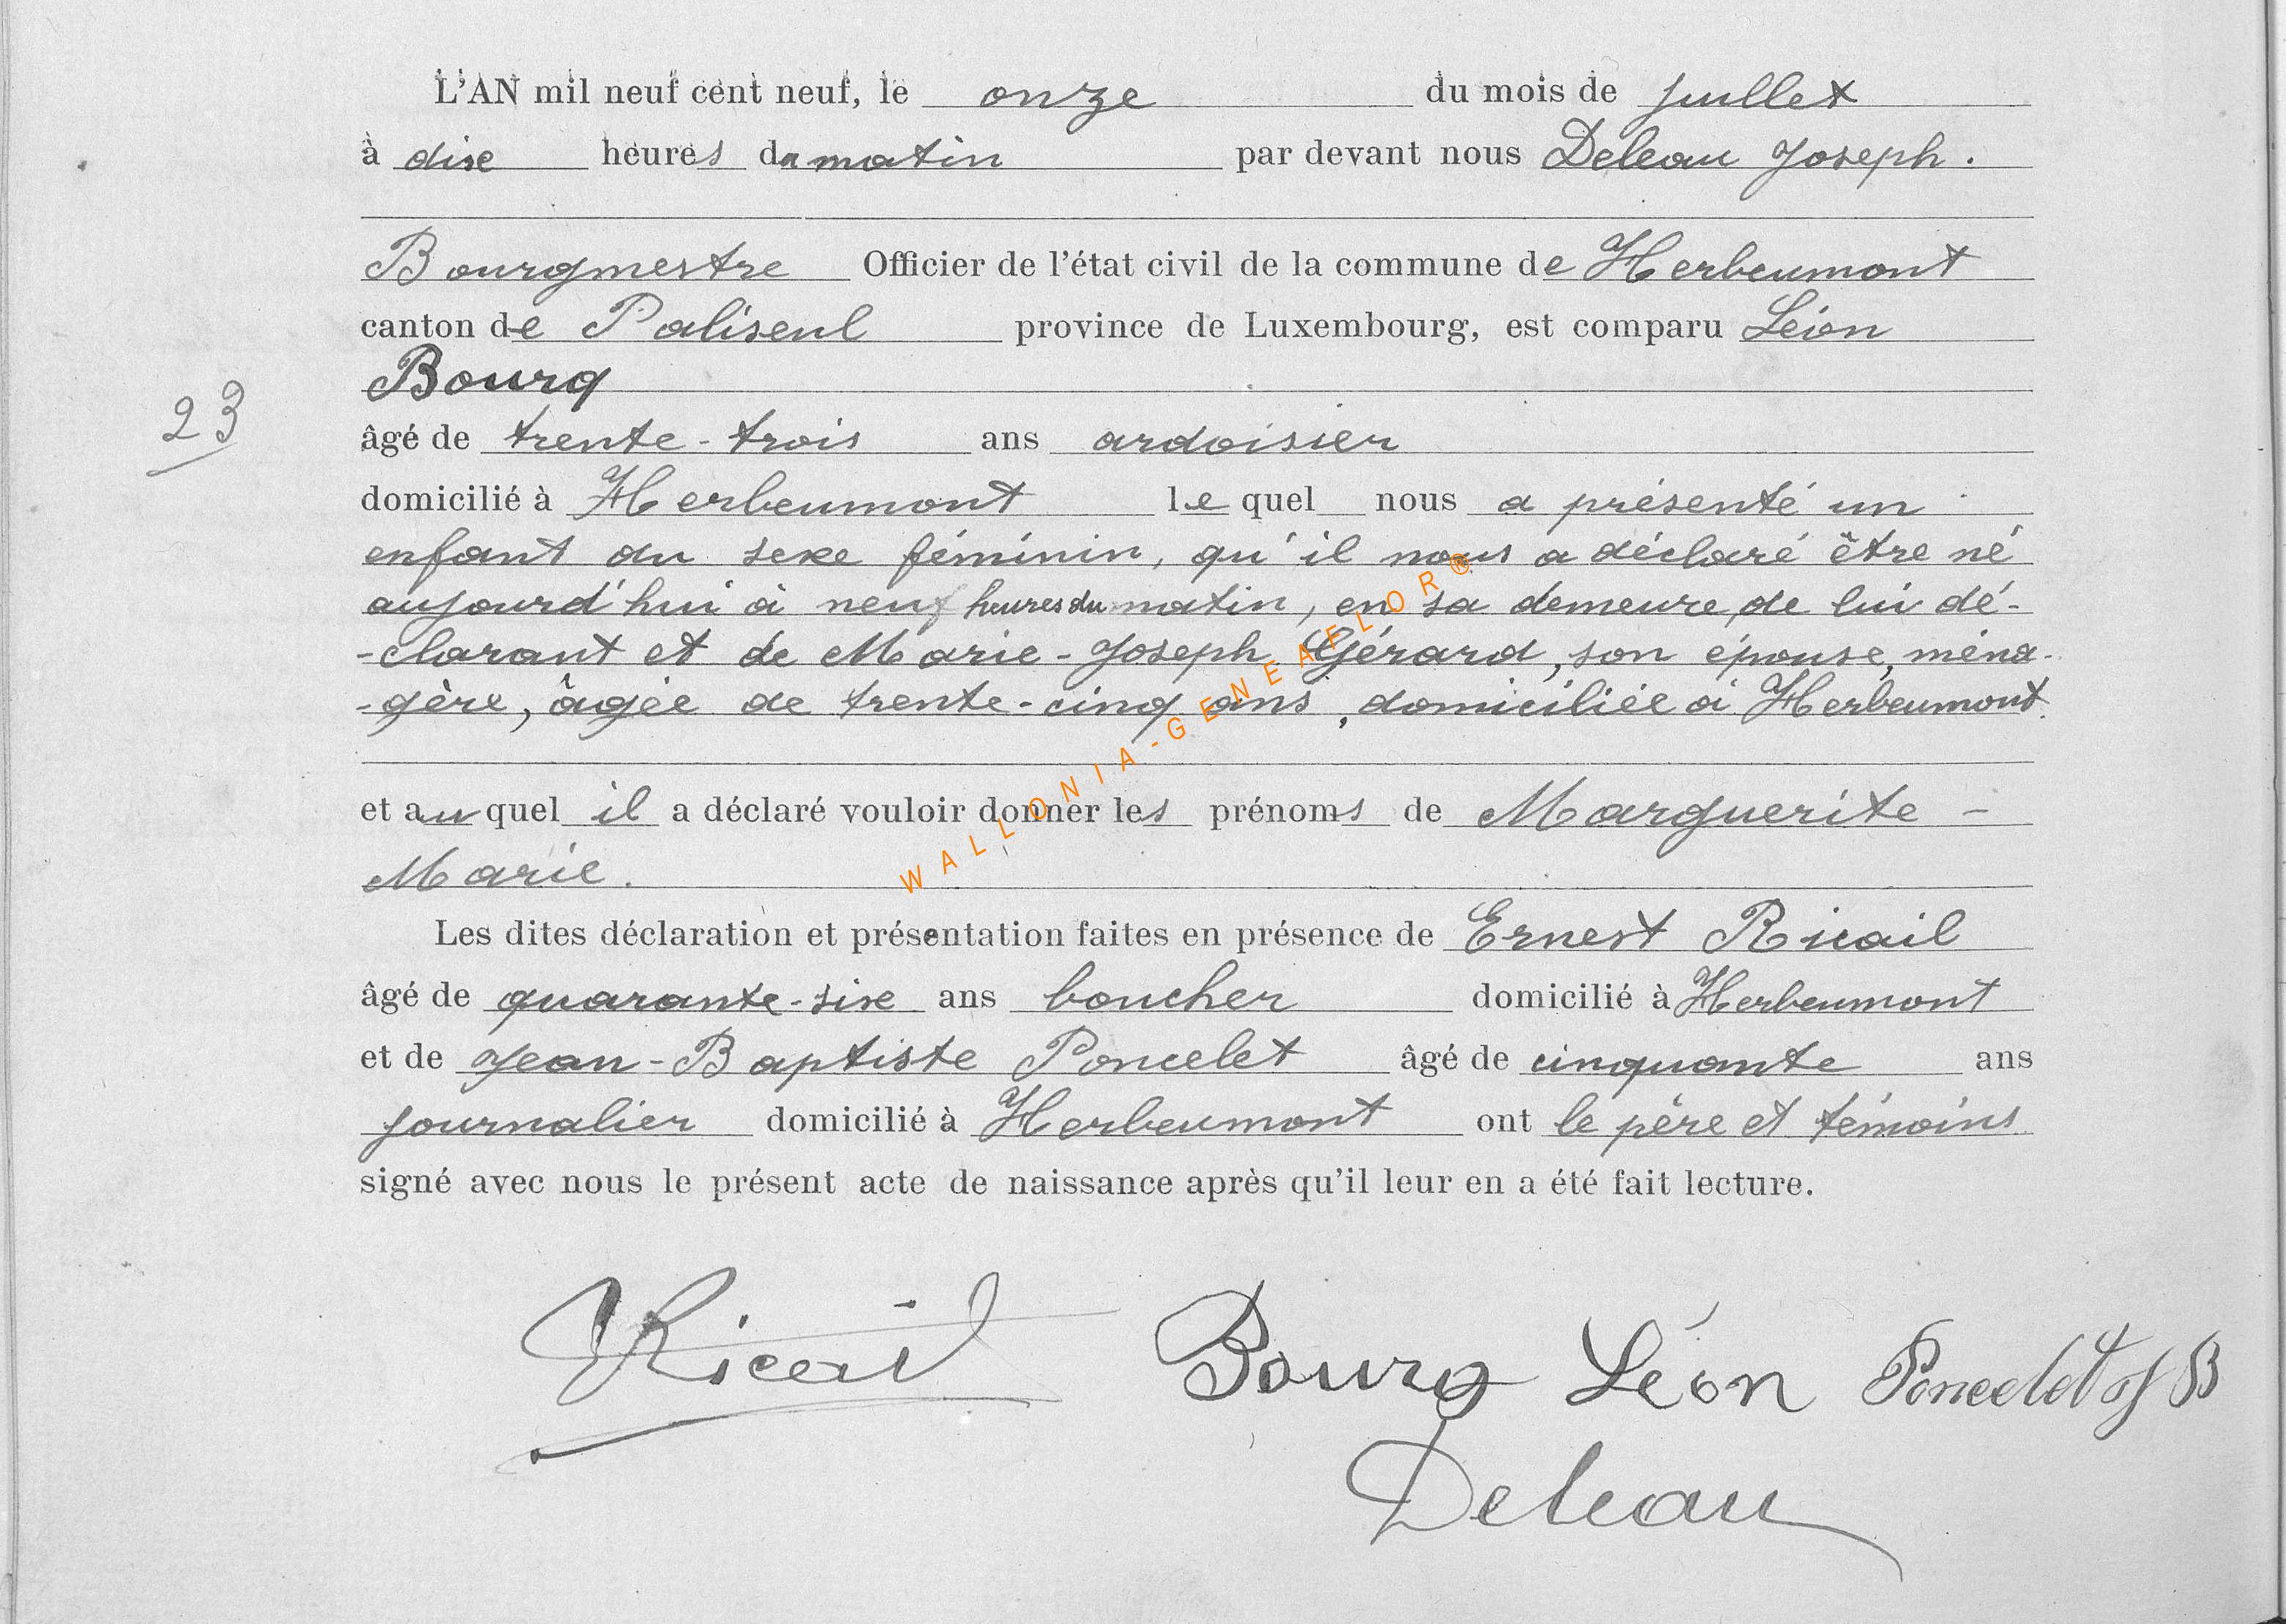 L'AN mil neuf cent neuf, le onze du mois de juillet
à dix heures du matin par devant nous Deleau Joseph.
Bourgmestre Officier de l'état civil de la commune de Herbeumont
canton de Paliseul province de Luxembourg, est comparu Léon
Bourg
23
âgé de trente-trois ans ardoisier
domicilié à Herbeumont lequel nous a présenté un
enfant du sexe féminin, qu'il nous a déclaré être né
aujourd'hui à neuf heures du matin, en sa demeure, de lui dé-
-clarant et de Marie-Joseph Gérard, son épouse, ména-
-gère, âgée de trente-cinq ans, domiciliée à Herbeumont.
WALLONIA-GENEAFLOR®
et auquel il a déclaré vouloir donner les prénoms de Marguerite -
Marie.
Les dites déclaration et présentation faites en présence de Ernest Ricail
âgé de quarante-six ans boucher domicilié à Herbeumont
et de Jean-Baptiste Poncelet âgé de cinquante ans
journalier domicilié à Herbeumont ont le père et témoins
signé avec nous le présent acte de naissance après qu'il leur en a été fait lecture.
Ricail Bourg Léon Poncelet J B
Deleau